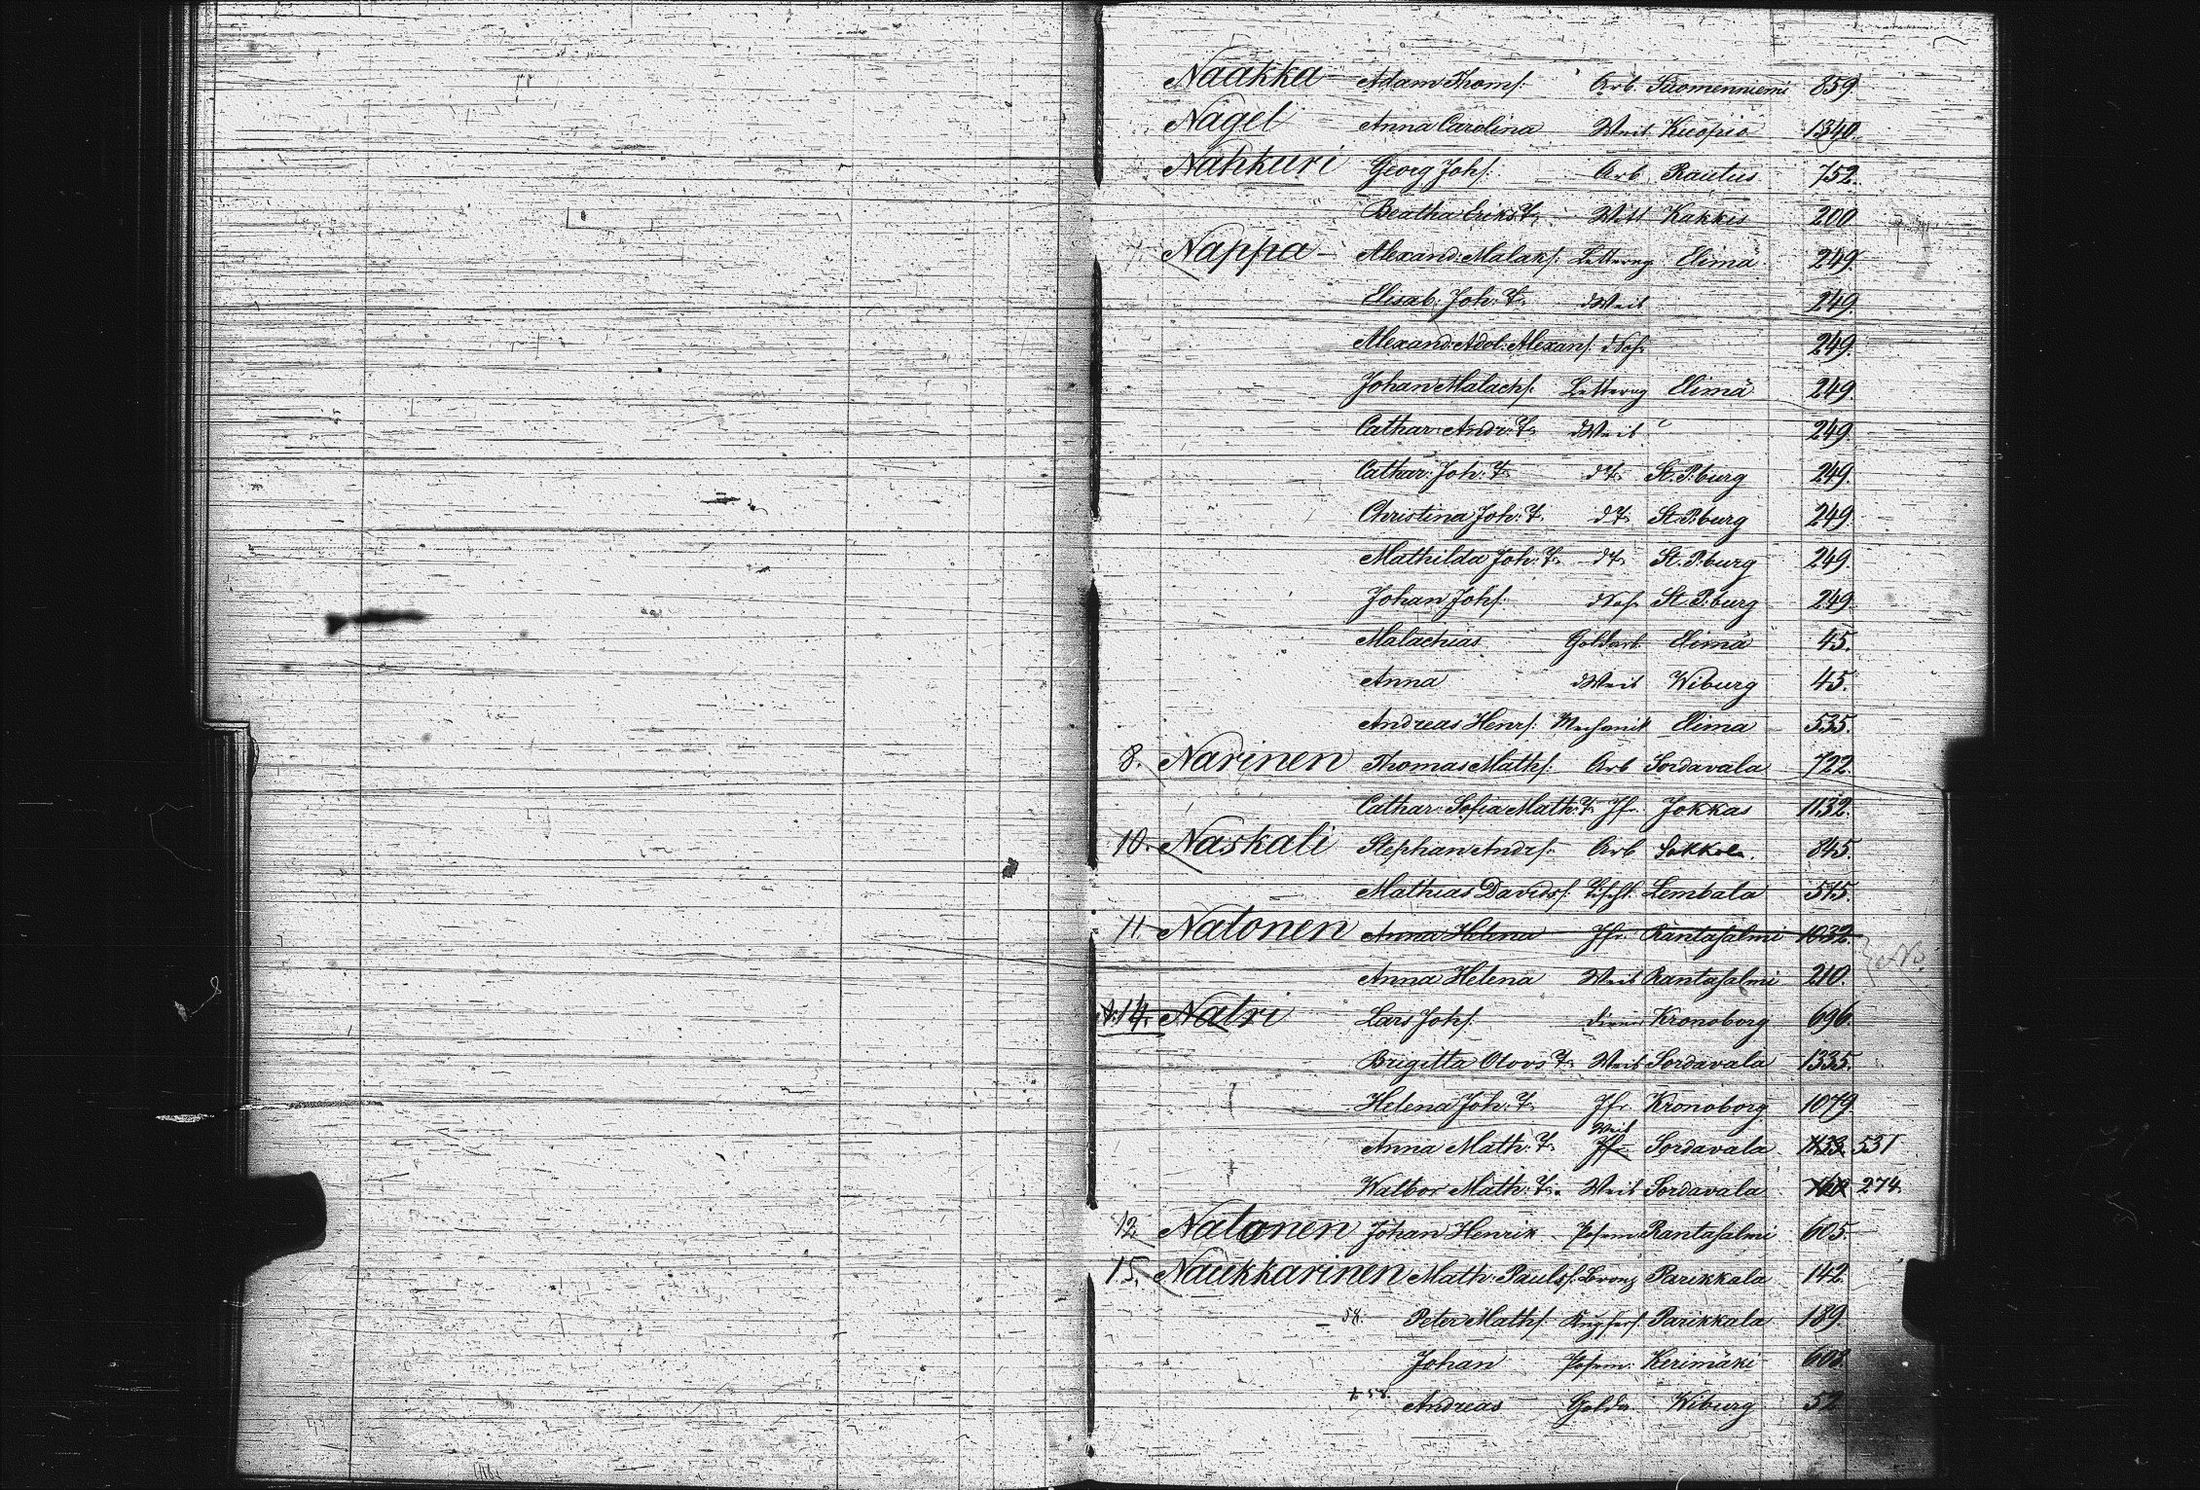 Naakka Adam Thoms: Arb. Suomenniemi 859.
Nagel Anna Carolina Weib Kuopio 1340.
Nahkuri Georg Johs: Arb Rautus 752.
Beatha Eriks T. Kakkis 200.
Nappa Alexand: Malaks: Elimä 249.
Elisab: Joh: T. dWeib 249.
Alexand: Adol: Alexans: dSoh 249.
Johan Malachs: Elimä 249.
Cathar: Andr: T. dWeib 249.
Cathar: Joh: T. dT. St. P:burg 249.
Christina Joh: T. dT. St. P:burg 249.
Mathilda Joh: T. dT. St. P:burg 249.
Johan Johs: dSoh St. P:burg 249.
Malachias Goldarb. Elimä 45.
Anna dWeib Wiburg 45.
Andreas Henrs: Mechanik Elima 535.
8. Narinen Thomas Maths: Arb Sordavala 722.
Cathar: Sofia Math: T. Jfr. Jokkas 1132.
10. Naskali Stephan Andrs: Arb Sakkola. 845.
Mathias Davids: Tischl. Lembala 515.
11. Natonen Anna Helena Jfr. Rantasalmi 1032.
Anna Helena Weib Rantasalmi 210.
14. Natri Lars Johs: Diener Kronoborg 696.
Brigitta Olovs T. Weib Sordavala 1335.
Helena Joh: T. Jfr. Kronoborg 1079.
Weib
Anna Math: T. Jfr. Sordavala 1133. 531
Walbor Math: T. Weib Sordavala 274.
12. Natonen Johan Henrik Posem: Rantasalmi 605.
15. Naukkarinen Math: Pauls: Bronz Parikkala 142.
58. Peter Maths: Parikkala 189.
Johan Posem: Kerimäki 608.
+ 58. Andreas Golda Wiburg 52